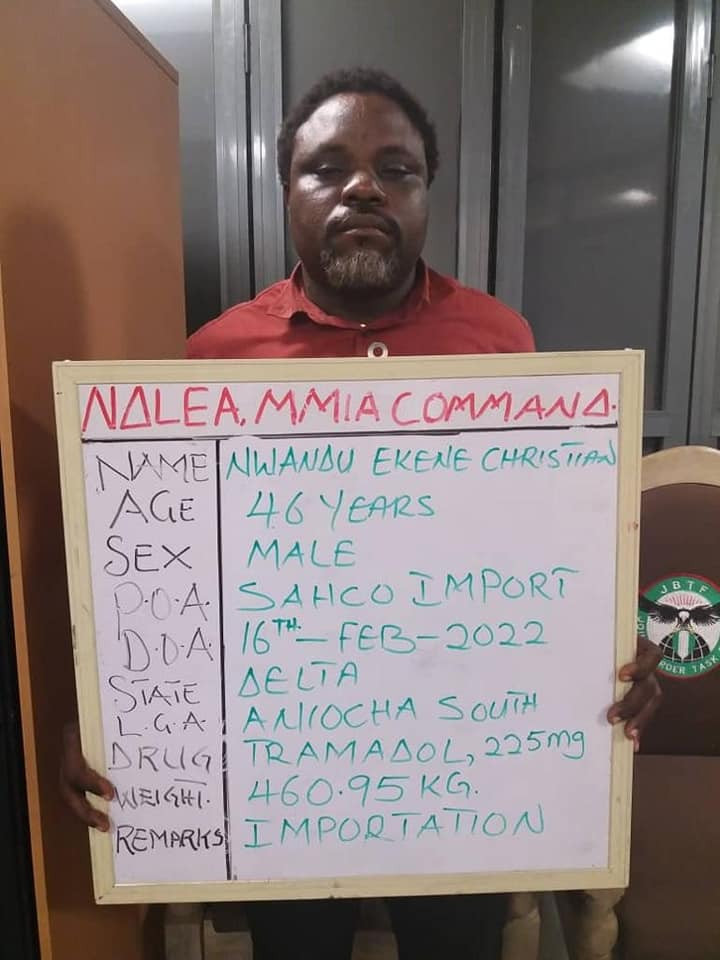 NDLEA, MMIA COMMAND.
NAME NWANDU EKENE CHRISTIAN
AGE 46 YEARS
SEX MALE
P.O.A. SAHCO IMPORT
D.O.A. 16TH - FEB - 2022
STATE DELTA
L.G.A. ANIOCHA SOUTH
DRUG TRAMADOL, 225mg
WEIGHT. 460.95 KG.
REMARKS IMPORTATION
JBTF
RDER TASK